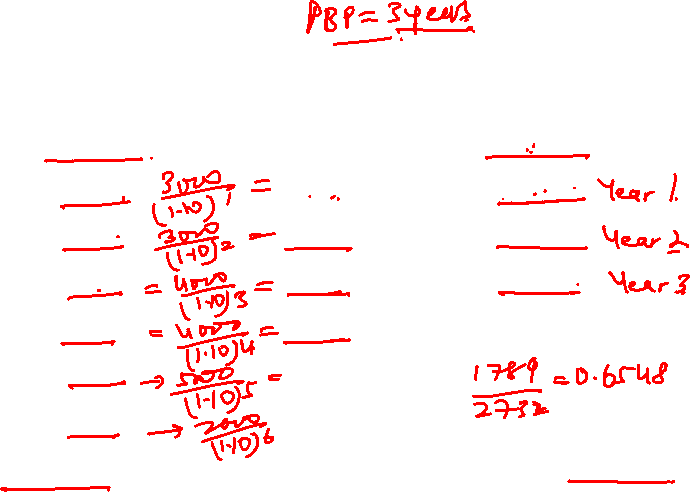 PBP = 3 years
3000/(1.10)1 =
Year 1.
3000/(1.10)2 =
Year 2
= 4000/(1.10)3 =
Year 3
= 4000/(1.10)4 =
→ 5000/(1.10)5 =
1789/2732 = 0.6548
→ 2000/(1.10)6